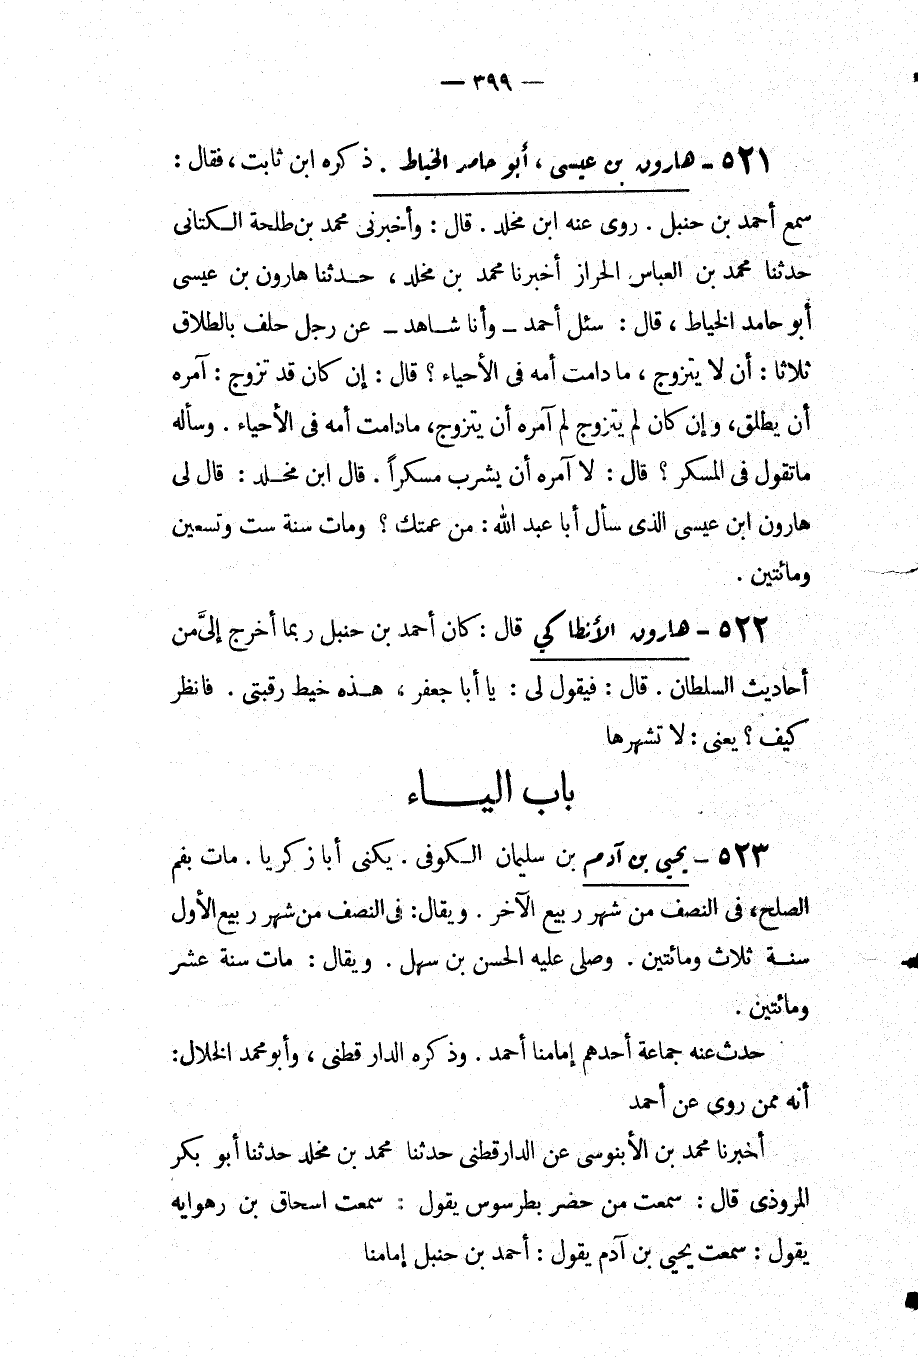 — ٣٩٩ —
٥٢١ - هارون بن عيسى ، أبو حامد الخياط . ذكره ابن ثابت ، فقال :
سمع أحمد بن حنبل . روى عنه ابن مخلد . قال : وأخبرنى محمد بن طلحة الـكتانى
حدثنا محمد بن العباس الحراز أخبرنا محمد بن مخلد ، حـدثنا هارون بن عيسى
أبو حامد الخياط ، قال : سئل أحمد ــ وأنا شـاهد ــ عن رجل حلف بالطلاق
ثلاثا : أن لا يتزوج ، ما دامت أمه فى الأحياء ؟ قال : إن كان قد تزوج : آمره
أن يطلق، وإن كان لم يتزوج لم آمره أن يتزوج، مادامت أمه فى الأحياء . وسأله
ماتقول فى المسكر ؟ قال : لا آمره أن يشرب مسكراً . قال ابن مخـلد : قال لى
هارون ابن عيسى الذى سأل أبا عبد الله : من عمتك ؟ ومات سنة ست وتسعين
ومائتين .
٥٢٢ - هارون الأنطاكي قال : كان أحمد بن حنبل ربما أخرج إلىَّ من
أحاديث السلطان . قال : فيقول لى : يا أبا جعفر ، هـذه خيط رقبتى . فانظر
كيف ؟ يعنى : لا تشهرها
باب اليـــاء
٥٢٣ - يحيى بن آدم بن سليمان الـكوفى . يكنى أبا زكريا . مات بفم
الصلح، فى النصف من شهر ربيع الآخر . ويقال: فى النصف من شهر ربيع الأول
سنـة ثلاث ومائتين . وصلى عليه الحسن بن سهل . ويقال : مات سنة عشر
ومائتين .
حدث عنه جماعة أحدهم إمامنا أحمد . وذكره الدارقطنى ، وأبو محمد الخلال:
أنه ممن روى عن أحمد
أخبرنا محمد بن الأبنوسى عن الدارقطنى حدثنا محمد بن مخلد حدثنا أبو بكر
المروذى قال : سمعت من حضر بطرسوس يقول : سمعت اسحاق بن رهوايه
يقول : سمعت يحيى بن آدم يقول : أحمد بن حنبل إمامنا